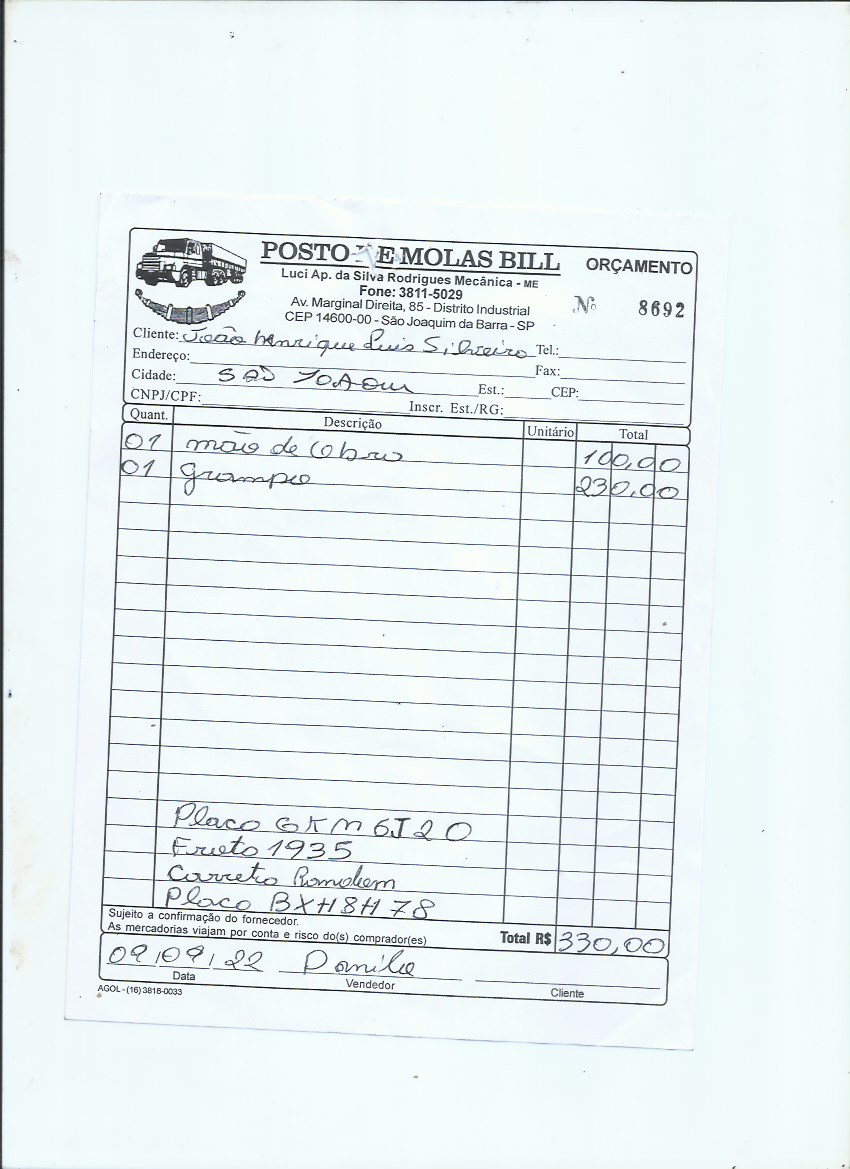 POSTO DE MOLAS BILL
ORÇAMENTO
Luci Ap. da Silva Rodrigues Mecânica - ME
Fone: 3811-5029
Av. Marginal Direita, 85 - Distrito Industrial
CEP 14600-00 - São Joaquim da Barra - SP
Nº 8692
Cliente: João Henrique Luis Silveiro Tel.:
Endereço: Fax:
Cidade: SAO JOAQUI Est.: CEP:
CNPJ/CPF: Inscr. Est./RG:
Quant. Descrição Unitário Total
01 mão de Obra 100,00
01 grampo 230,00
Placa GKM6J20
Frete 1935
Carreta Randem
Placa BXH8H78
Sujeito a confirmação do fornecedor.
As mercadorias viajam por conta e risco do(s) comprador(es)
Total R$ 330,00
09/09/22 Danilo
Data Vendedor Cliente
AGOL - (16) 3818-0033